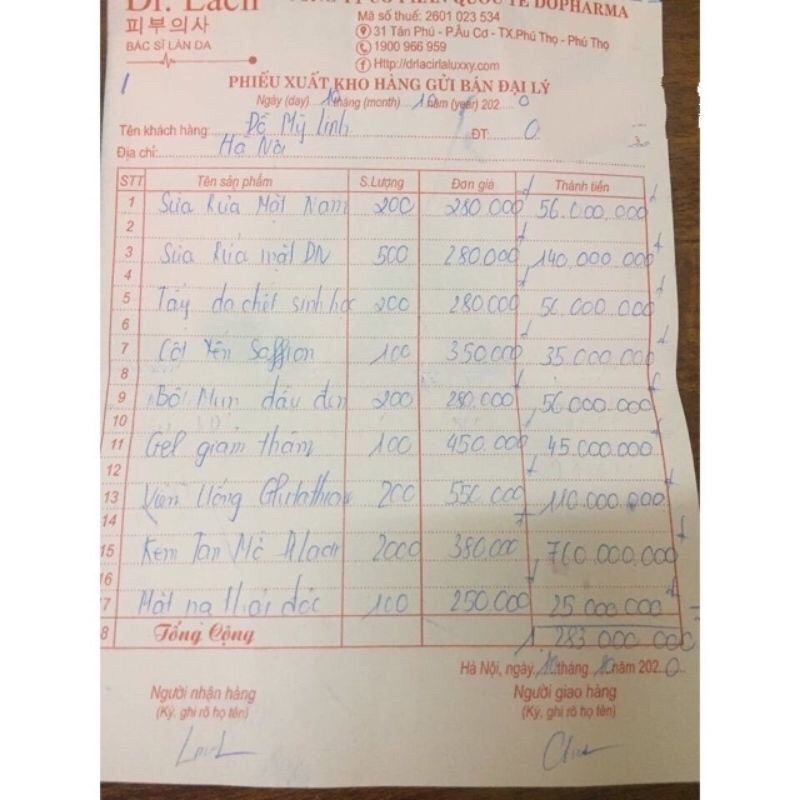 Dr. Lacir
피부의사
BÁC SĨ LÀN DA
CÔNG TY CỔ PHẦN QUỐC TẾ DOPHARMA
Mã số thuế: 2601 023 534
31 Tân Phú - P.Âu Cơ - TX.Phú Thọ - Phú Thọ
1900 966 959
Http://drlacirlaluxxy.com
PHIẾU XUẤT KHO HÀNG GỬI BÁN ĐẠI LÝ
Ngày (day) 10 tháng (month) 10 năm (year) 2020
Tên khách hàng: Đỗ Mỹ Linh ĐT: 0
Địa chỉ: Hà Nội
STT Tên sản phẩm S.Lượng Đơn giá Thành tiền
1 Sữa Rửa Mặt Nam 200 280.000đ 56.000.000đ
2
3 Sữa Rửa mặt DN 500 280.000đ 140.000.000đ
4
5 Tẩy da chết sinh học 200 280.000đ 56.000.000đ
6
7 Cốt Yến Saffron 100 350.000đ 35.000.000đ
8
9 Bôi Mụn đầu đen 200 280.000đ 56.000.000đ
10
11 Gel giảm thâm 100 450.000đ 45.000.000đ
12
13 Viên Uống Glutathione 200 550.000đ 110.000.000đ
14
15 Kem Tan Mỡ Dr Lacir 2000 380.000đ 760.000.000đ
16
17 Mặt nạ thải độc 100 250.000đ 25.000.000đ
18 Tổng Cộng 1.283.000.000đ
Hà Nội, ngày 10 tháng 10 năm 2020
Người nhận hàng Người giao hàng
(Ký, ghi rõ họ tên) (Ký, ghi rõ họ tên)